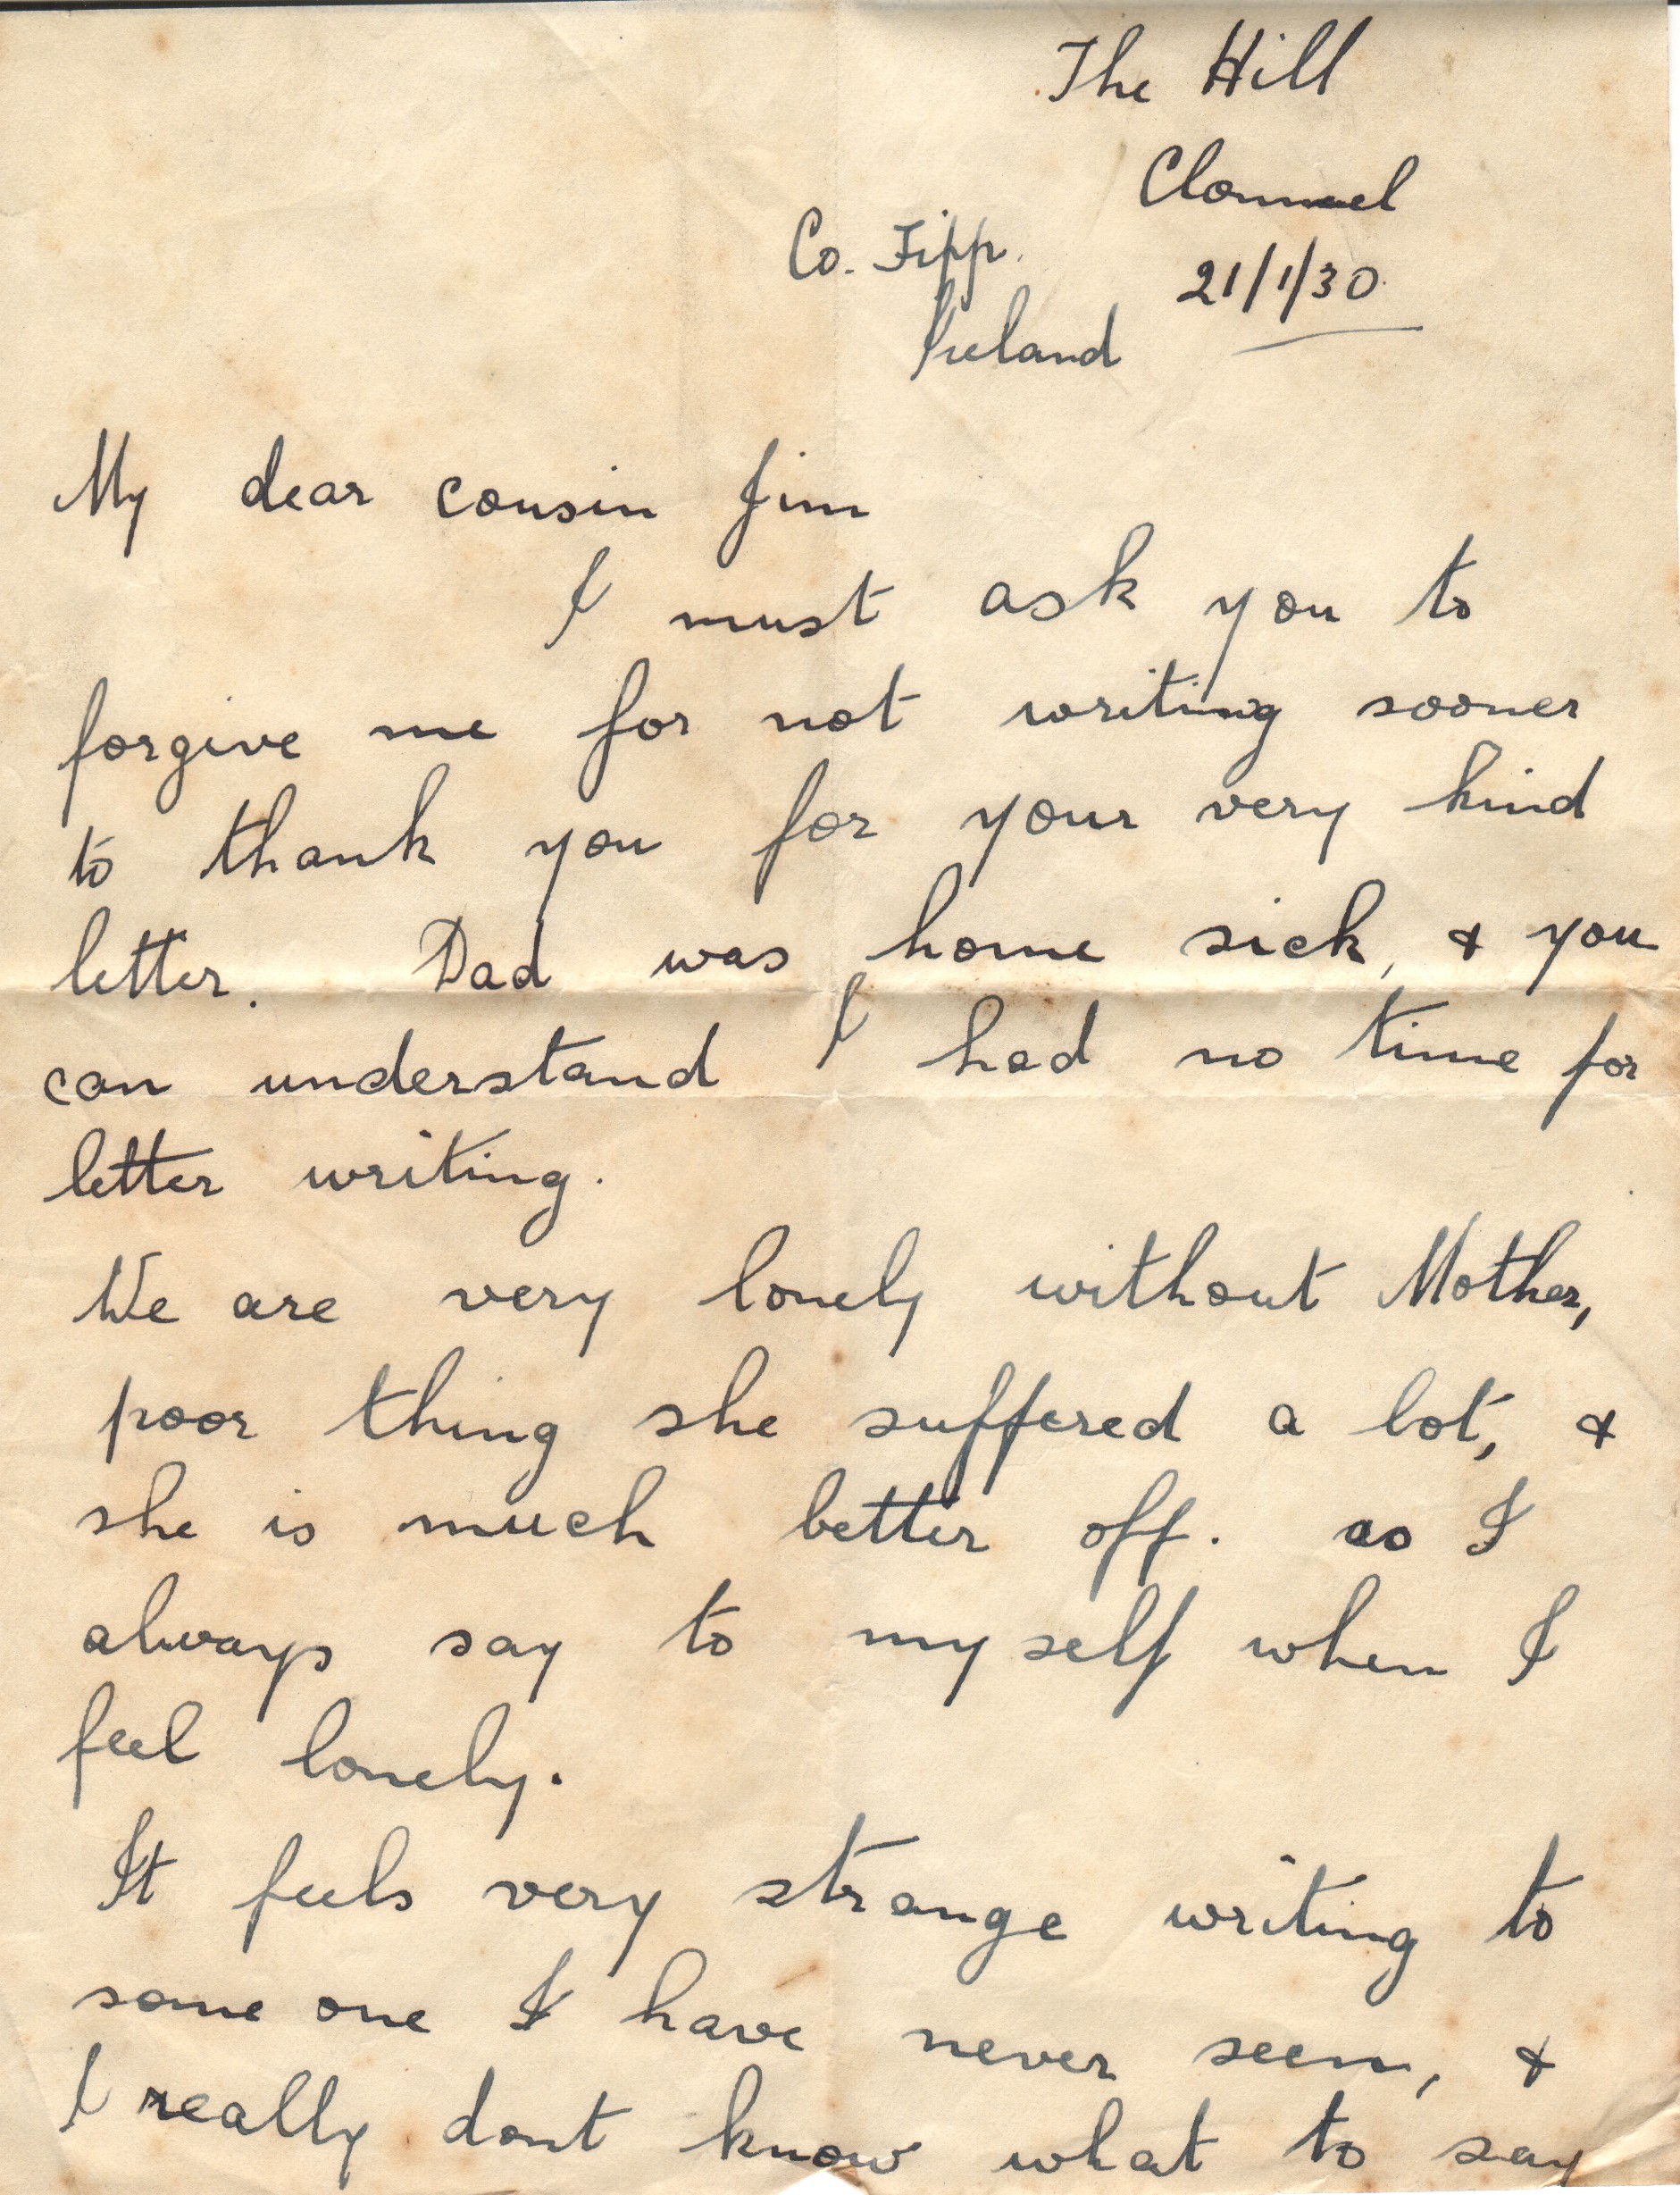 The Hill
Clonmel
Co. Tipp.
21/1/30
Ireland
My dear cousin Jim
I must ask you to
forgive me for not writing sooner
to thank you for your very kind
letter. Dad was home sick, & you
can understand I had no time for
letter writing.
We are very lonely without Mother,
poor thing she suffered a lot, &
she is much better off. as I
always say to my self when I
feel lonely.
It feels very strange writing to
some one I have never seen, &
I really dont know what to say